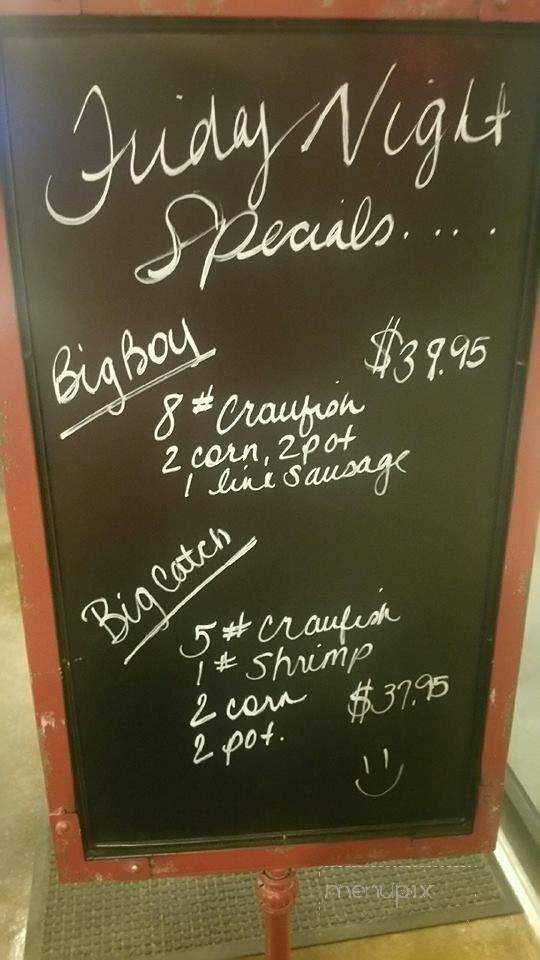 Friday Night
Specials.....
Big Boy $39.95
8# Craufish
2 corn, 2 pot
1 link Sausage
Big Catch
5# craufish
1# Shrimp
2 corn $37.95
2 pot.
menupix